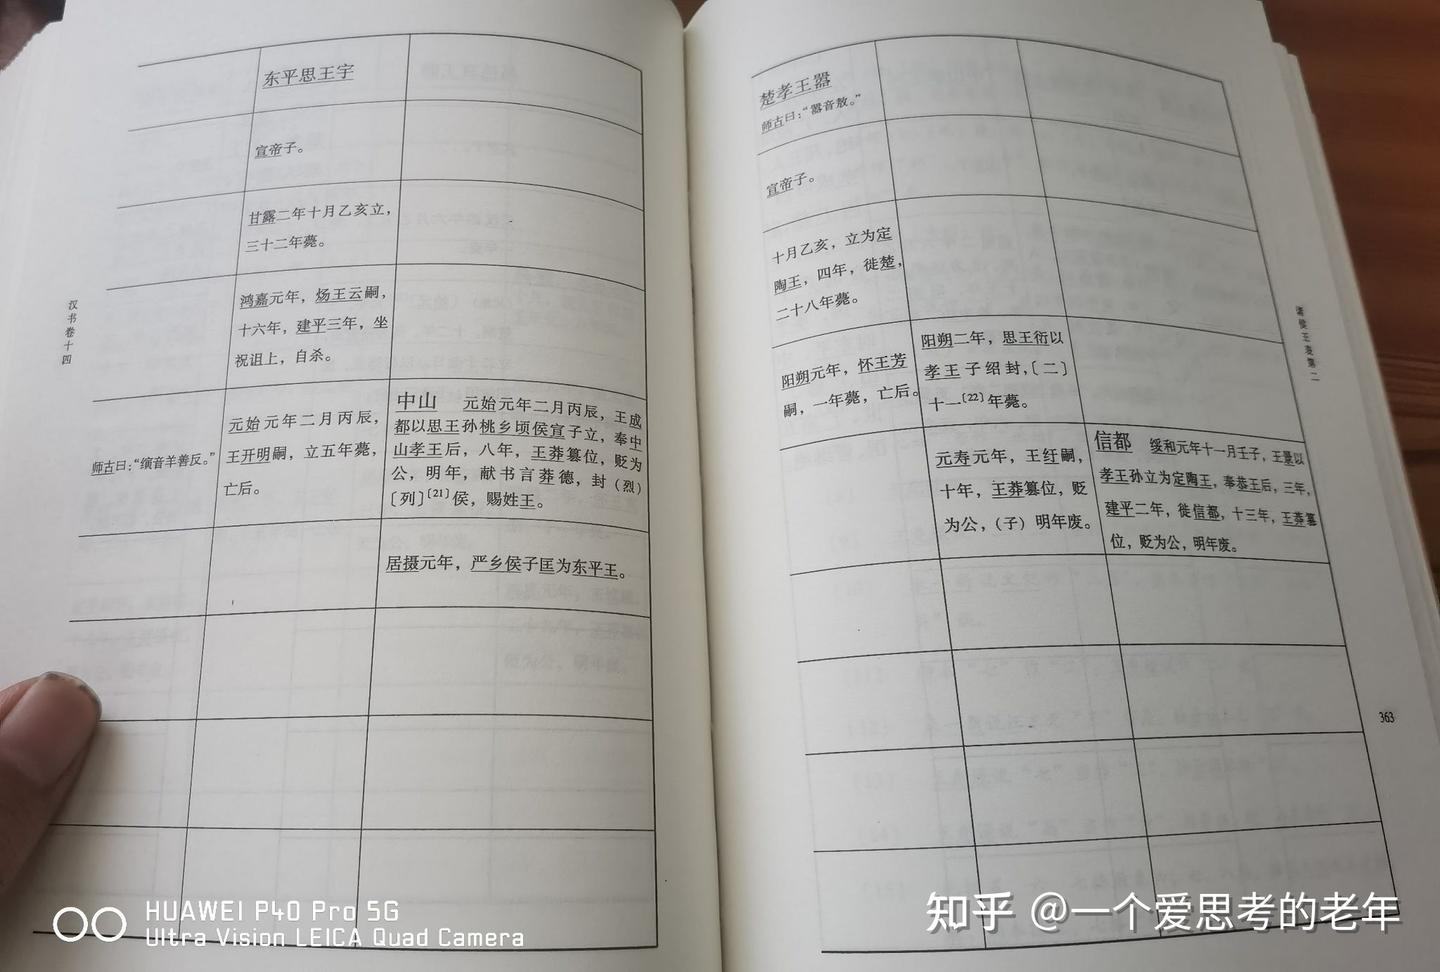 汉书卷十四
东平思王宇
宣帝子。
甘露二年十月乙亥立，
三十二年薨。
鸿嘉元年，炀王云嗣，
十六年，建平三年，坐
祝诅上，自杀。
师古曰：“縯音羊善反。”
元始元年二月丙辰，
王开明嗣，立五年薨，
亡后。
中山 元始元年二月丙辰，王成
都以思王孙桃乡顷侯宣子立，奉中
山孝王后，八年，王莽篡位，贬为
公，明年，献书言莽德，封（烈）
〔列〕[21]侯，赐姓王。
居摄元年，严乡侯子匡为东平王。
楚孝王嚣
师古曰：“嚣音敖。”
宣帝子。
十月乙亥，立为定
陶王，四年，徙楚，
二十八年薨。
阳朔元年，怀王芳
嗣，一年薨，亡后。
阳朔二年，思王衍以
孝王子绍封，〔二〕
十一[22]年薨。
元寿元年，王纡嗣，
十年，王莽篡位，贬
为公，（子）明年废。
信都 绥和元年十一月壬子，王景以
孝王孙立为定陶王，奉恭王后，三年，
建平二年，徙信都，十三年，王莽篡
位，贬为公，明年废。
诸侯王表第二
363
HUAWEI P40 Pro 5G
Ultra Vision LEICA Quad Camera
知乎 @一个爱思考的老年